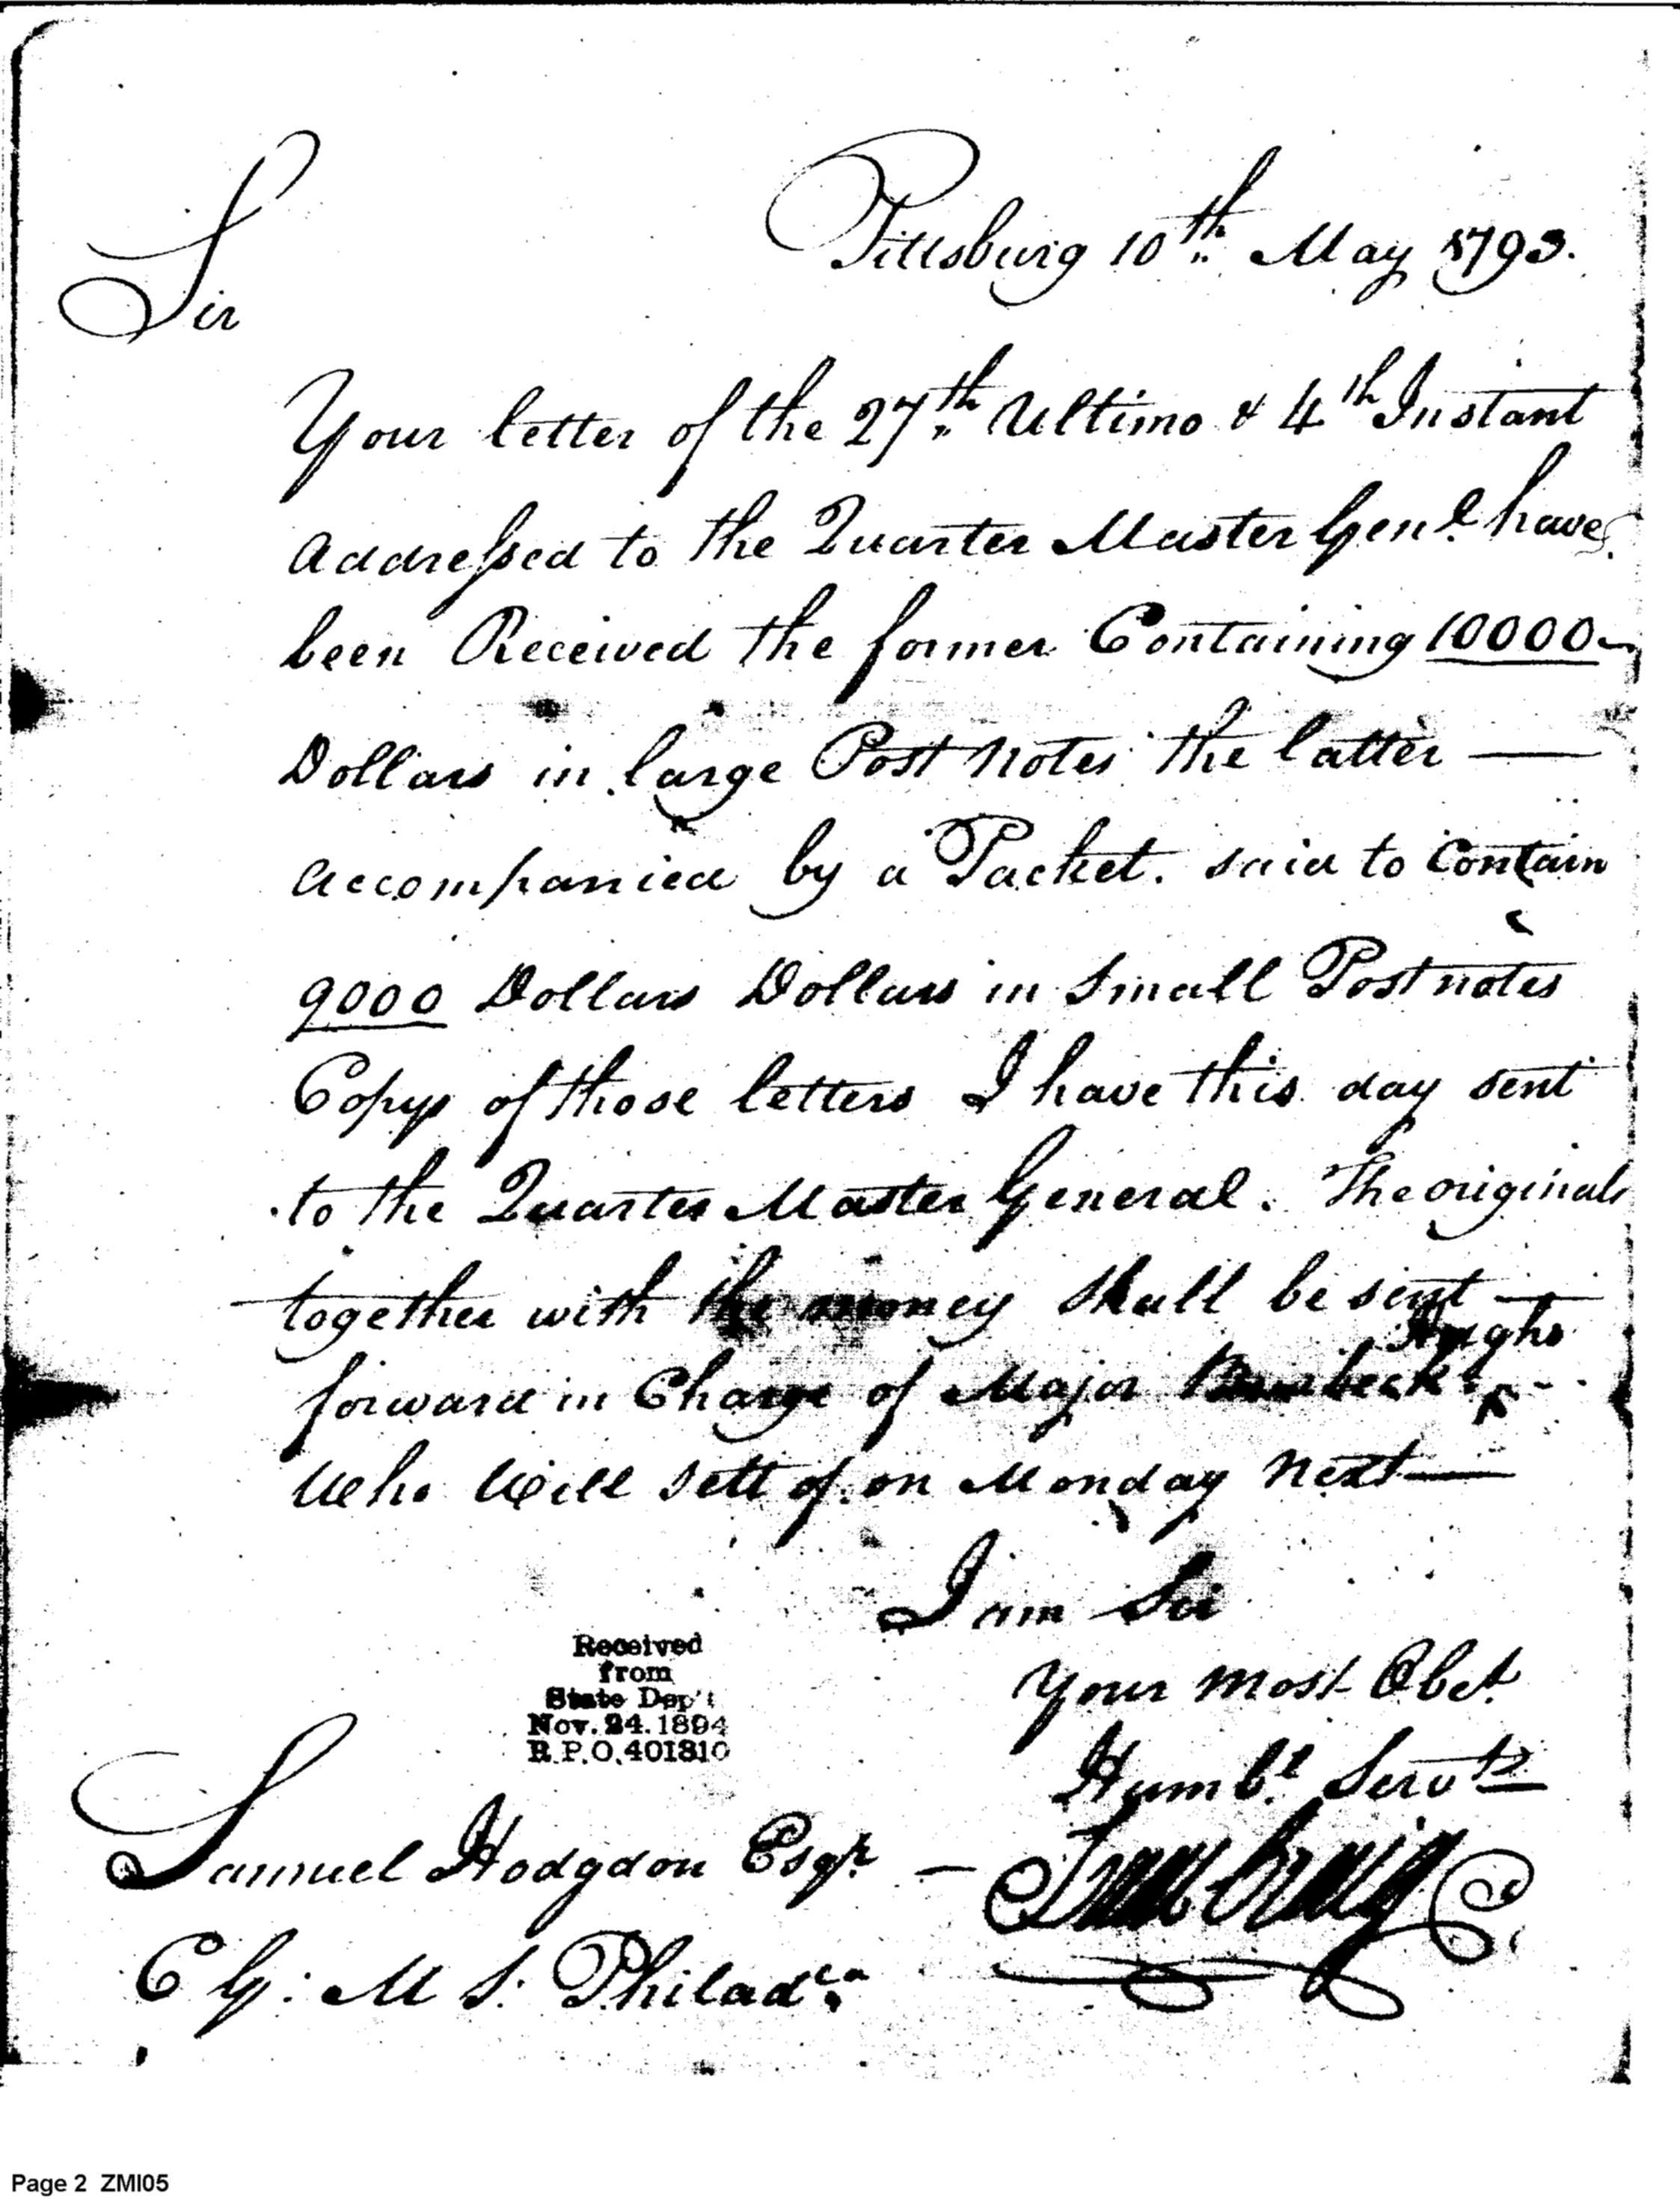 Pittsburg 10th May 1793.
Sir
Your letter of the 27th Ultimo & 4th Instant
addressed to the Quarter Master Genl. have
been Received the former Containing 10000
Dollars in large Post notes the latter —
accompanied by a Packet. said to Contain
9000 Dollars Dollars in Small Post notes
Copys of those letters I have this day sent
to the Quarter Master General. The originals
together with the money Shall be sent —
Hughs
forward in Charge of Major Burbeck
Who Will sett of on Monday Next —
I am Sir
Your most Obet.
Humbl. Servt
Isaac Craig
Received
from
State Dep't
Nov. 24. 1894
R.P.O. 401310
Samuel Hodgdon Esqr. —
C G: M S: Philada.
Page 2 ZMI05